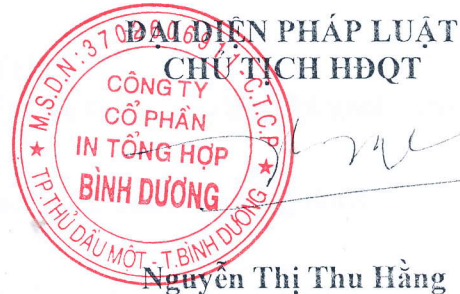 ĐẠI DIỆN PHÁP LUẬT
CHỦ TỊCH HĐQT
CÔNG TY
CỔ PHẦN
IN TỔNG HỢP
BÌNH DƯƠNG
C.T.C.P
TP.THỦ DẦU MỘT - T.BÌNH DƯƠNG
Nguyễn Thị Thu Hằng